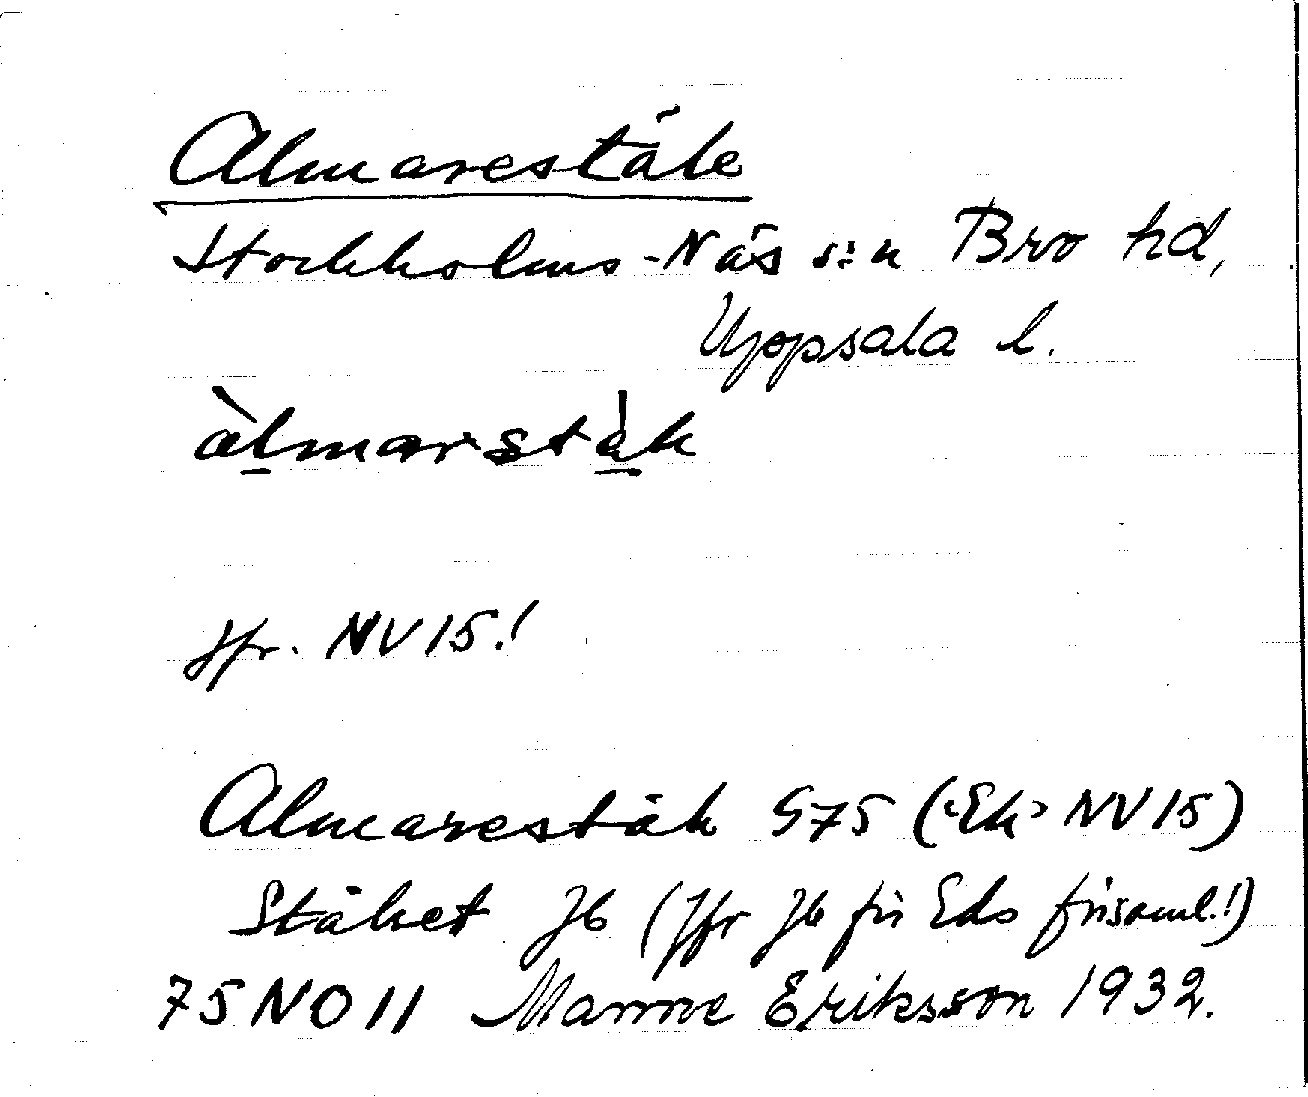 Almarestäke
Stockholms-Näs s:n Bro hd,
Uppsala l.
àlmarstàk
Jfr. NV15!
Almarestäk G75 (Ek NV15)
Stäket Jb (Jfr Jb för Eds församl.!)
75NO11 Manne Eriksson 1932.